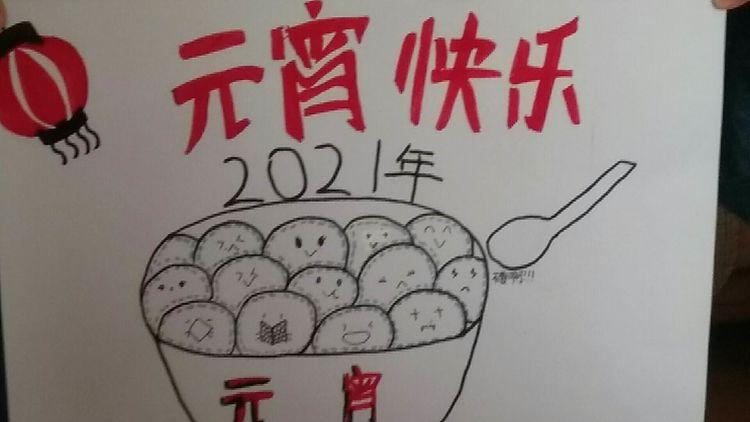 元宵快乐
2021年
元宵